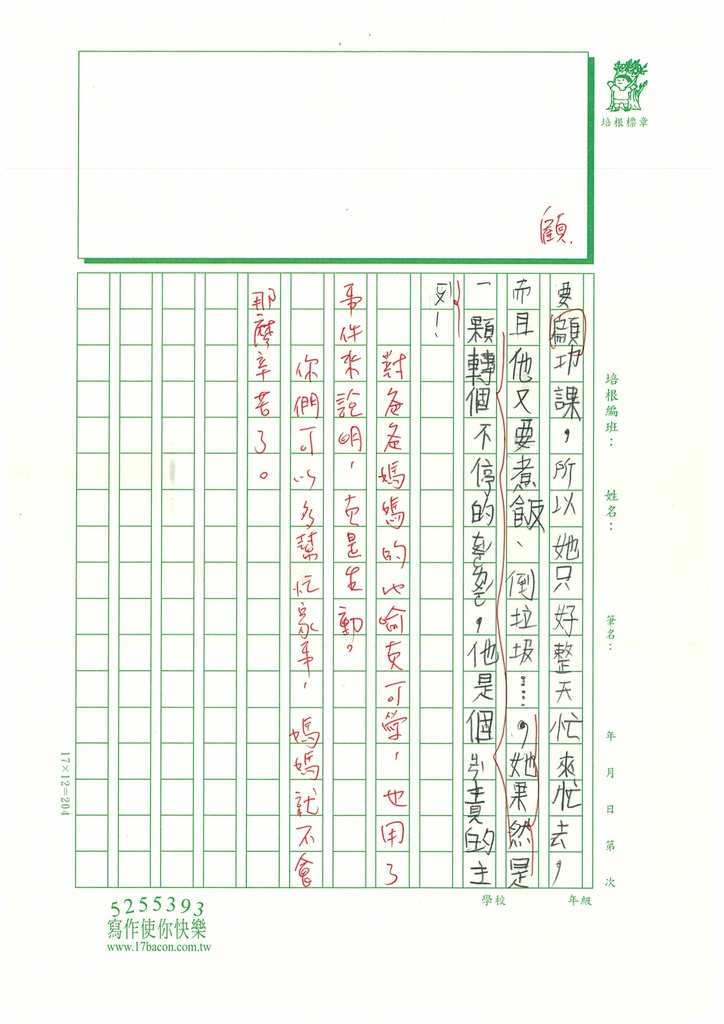 培根標章
顧
培根編班：
姓名：
筆名：
年 月 日 第 次
年級
學校
要顧功課，所以她只好整天忙來忙去，
而且他又要煮飯、倒垃圾……，她果然是
一顆轉個不停的，他是個責的主
對爸爸媽媽的比喻真可學，也用了
事件來說明，真是生動。
你們可以多幫忙家事，媽媽就不會
那麼辛苦了。
17×12=204
5255393
寫作使你快樂
www.17bacon.com.tw